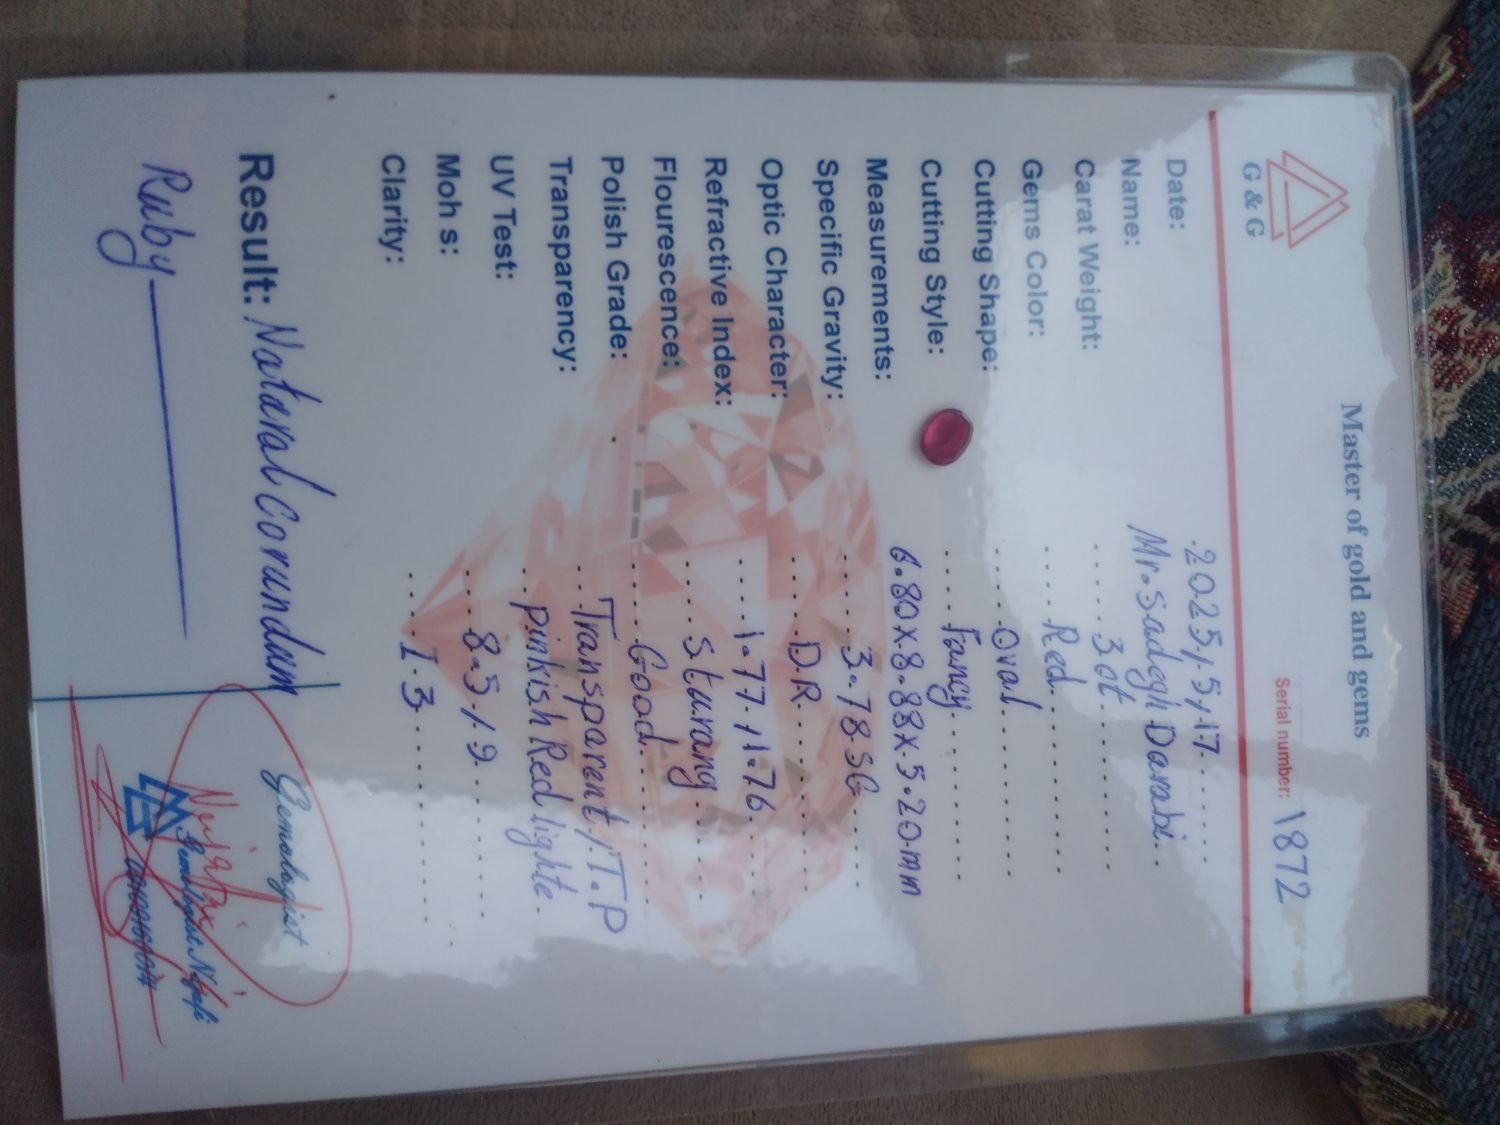 Master of gold and gems
G & G
Serial number: 1872
Date: .2025,.5,.17......
Name: Mr.Sadegh Darabi..
Carat Weight: .....3ct..........
Gems Color: .....Red............
Cutting Shape: .....Oval...........
Cutting Style: .....Fancy............
Measurements: 6.80x.8.88x.5.20mm
Specific Gravity: .....3.78SG.......
Optic Character: .....D.R............
Refractive Index: ....1.77,1.76.....
Flourescence: .....Sturang.......
Polish Grade: .....Good.........
Transparency: ...Transparent/.T.P
UV Test: ..pinkish Red lighte.
Moh s: .....8.5/9...........
Clarity: .....I.3...............
Result: Nataral Corundum
Ruby
Gemologist